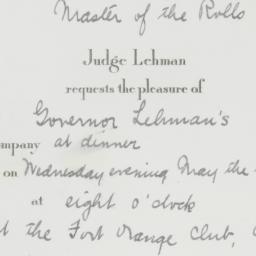 Master of the Rolls
Judge Lehman
requests the pleasure of
Governor Lehman's
ompany at dinner
on Wednesday evening May the
at eight o'clock
t the Fort Orange Club,